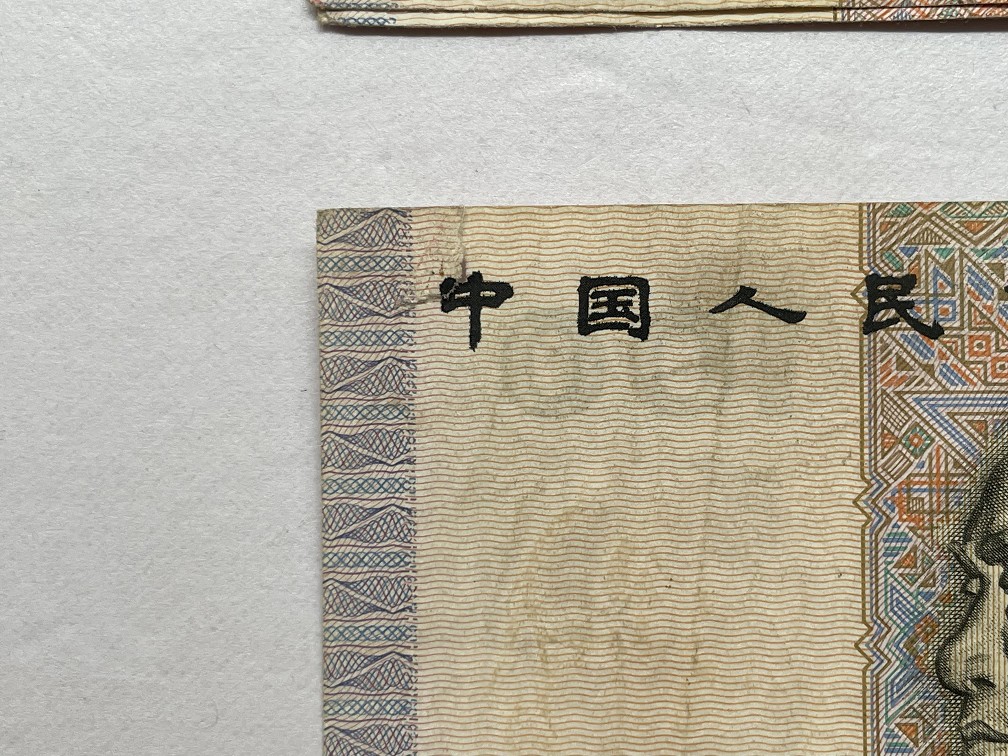 中国人民